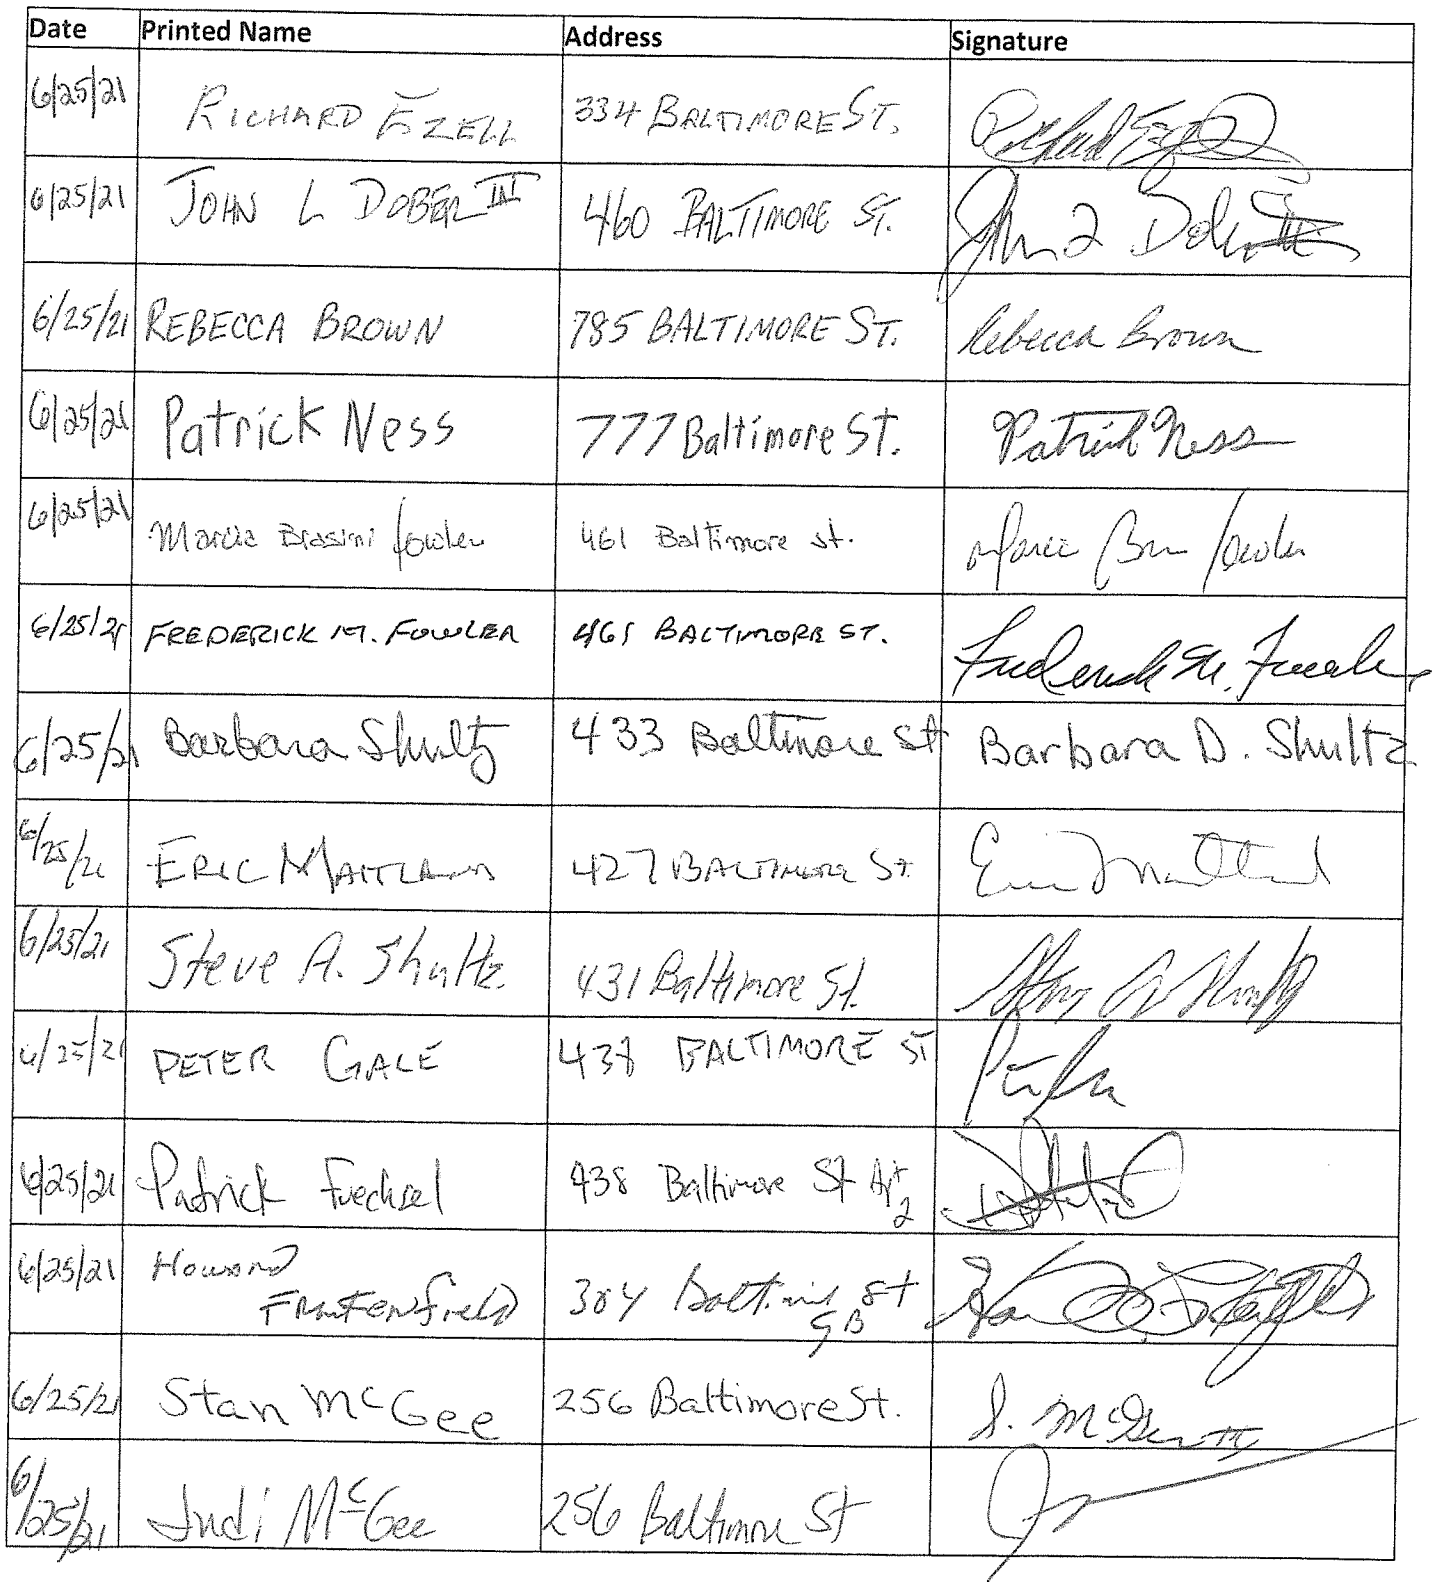 Date Printed Name Address Signature
6/25/21 RICHARD EZELL 334 BALTIMORE ST.
6/25/21 JOHN L DOBER III 460 BALTIMORE ST. John L Dober III
6/25/21 REBECCA BROWN 785 BALTIMORE ST. Rebecca Brown
6/25/21 Patrick Ness 777 Baltimore St. Patrick Ness
6/25/21 Marcia Brasini fowler 461 Baltimore st.
6/25/21 FREDERICK M. FOWLER 461 BALTIMORE ST. Frederick M. Fowler
6/25/21 Barbara Shultz 433 Baltimore St Barbara D. Shultz
6/25/21 ERIC MAITLAND 427 BALTIMORE ST. Eric Maitland
6/25/21 Steve A. Shultz 431 Baltimore St.
6/25/21 PETER GALE 438 BALTIMORE ST
6/25/21 Patrick Fuechsel 438 Baltimore St Apt 2
6/25/21 Howard 304 Baltimore St GB
6/25/21 Stan McGee 256 Baltimore St.
6/25/21 Judi McGee 256 Baltimore St